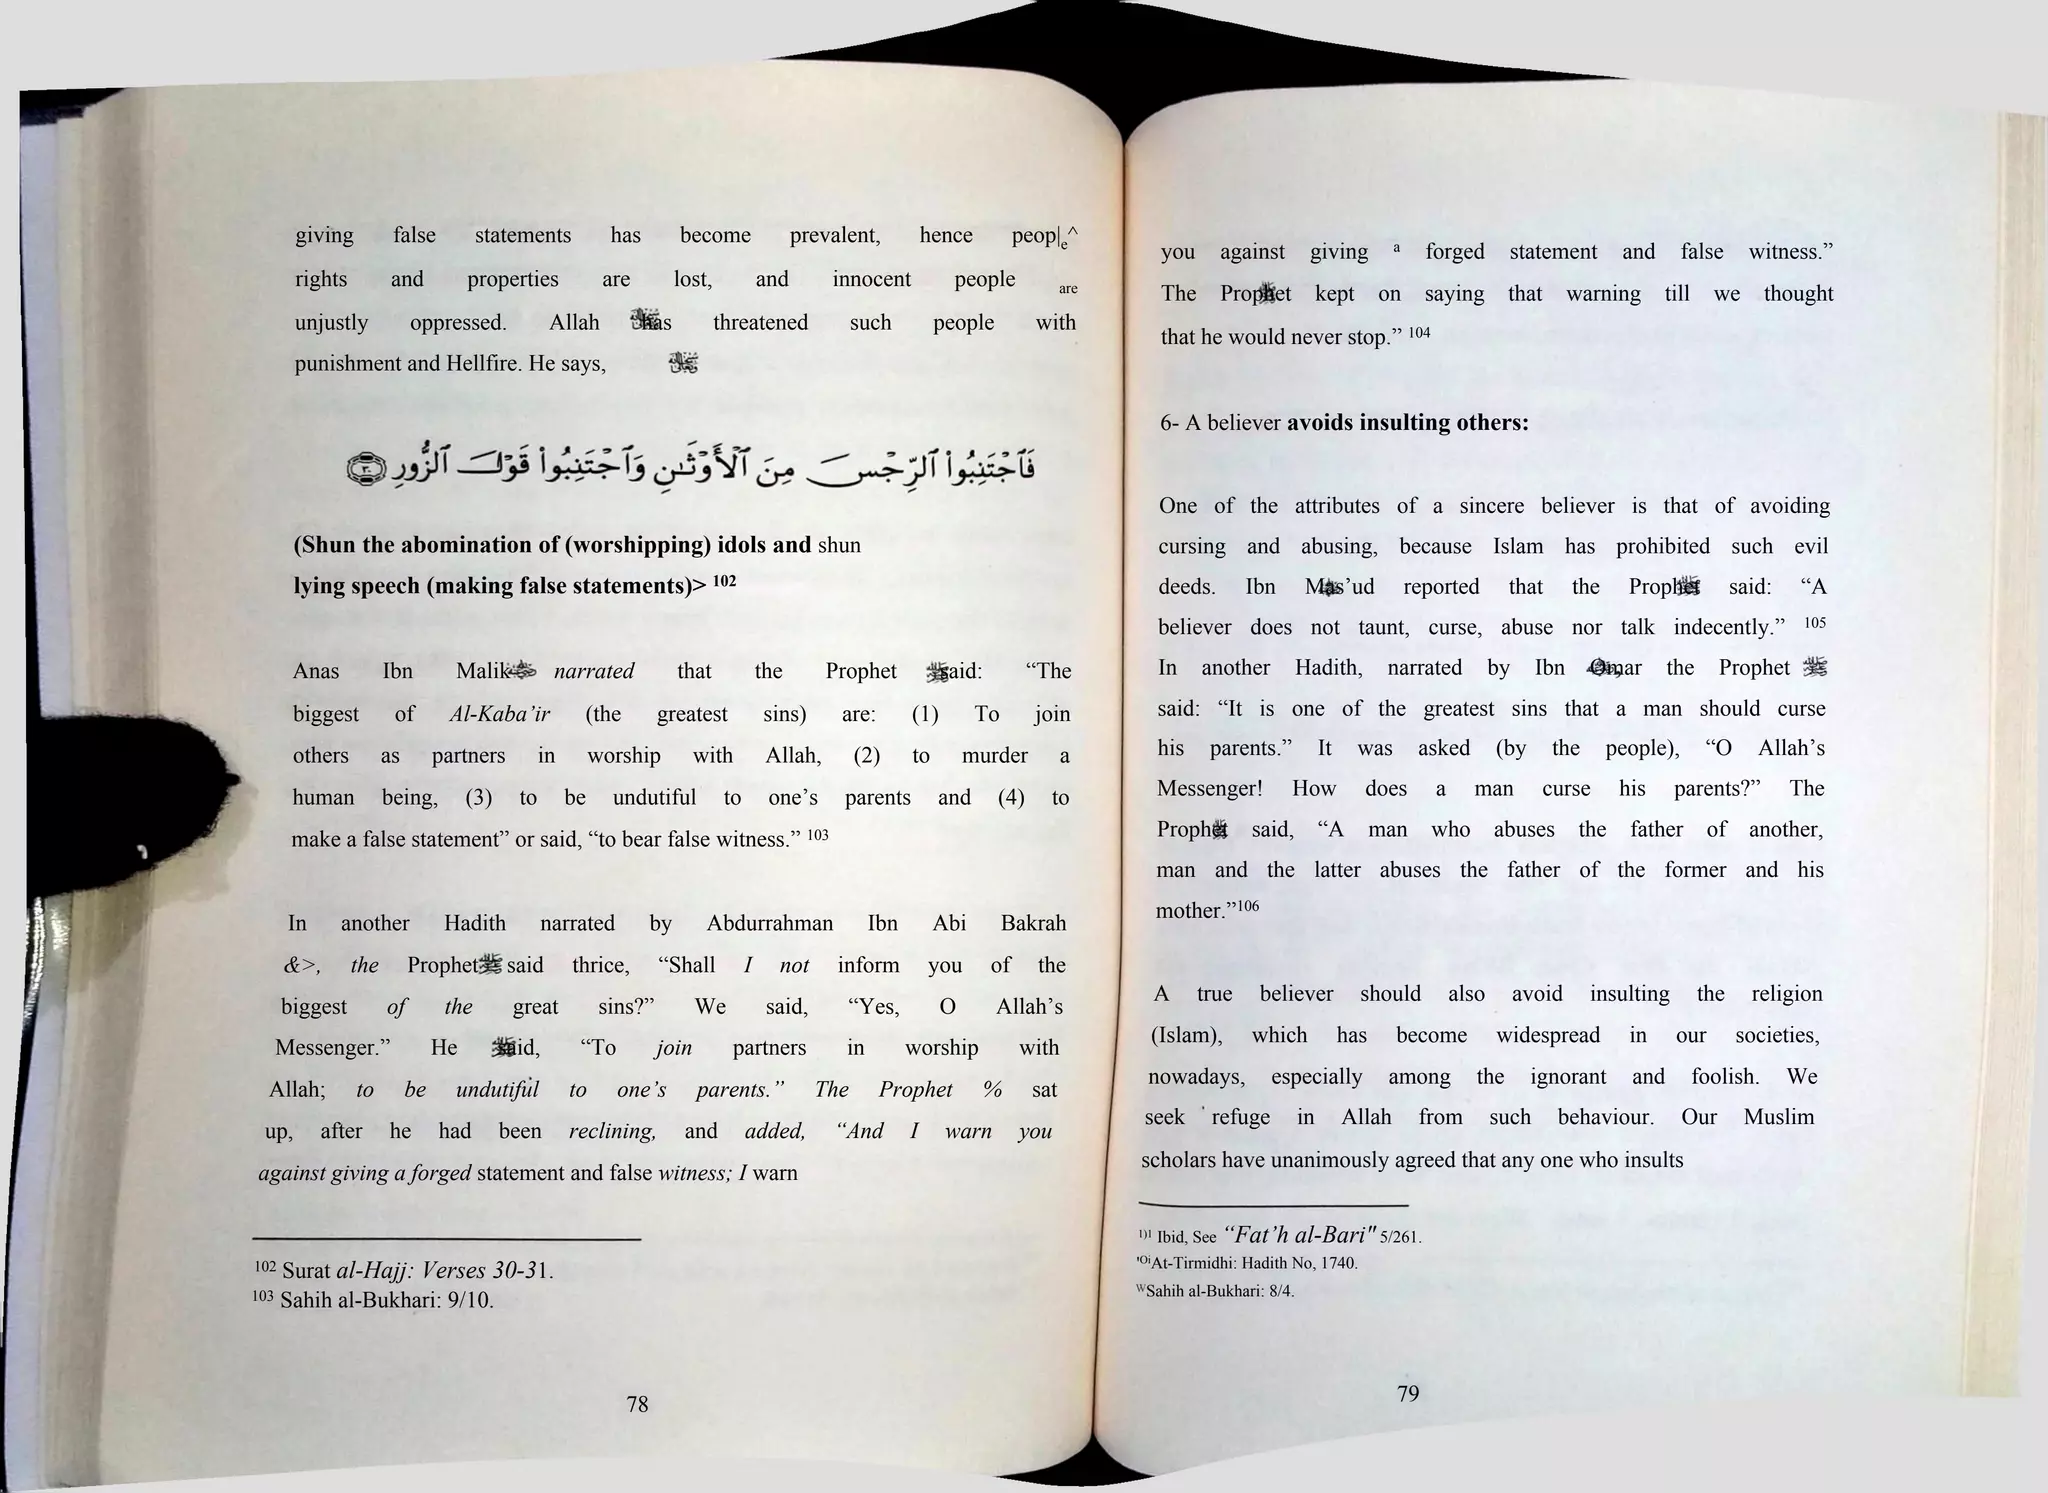 giving false statements has become prevalent, hence peop|e^
rights and properties are lost, and innocent people are
unjustly oppressed. Allah has threatened such people with
punishment and Hellfire. He says,
فَٱجْتَنِبُوا۟ ٱلرِّجْسَ مِنَ ٱلْأَوْثَـٰنِ وَٱجْتَنِبُوا۟ قَوْلَ ٱلزُّورِ ٣٠
(Shun the abomination of (worshipping) idols and shun
lying speech (making false statements)> 102
Anas Ibn Malik narrated that the Prophet said: “The
biggest of Al-Kaba’ir (the greatest sins) are: (1) To join
others as partners in worship with Allah, (2) to murder a
human being, (3) to be undutiful to one’s parents and (4) to
make a false statement” or said, “to bear false witness.” 103
In another Hadith narrated by Abdurrahman Ibn Abi Bakrah
&>, the Prophet ﷺ said thrice, “Shall I not inform you of the
biggest of the great sins?” We said, “Yes, O Allah’s
Messenger.” He said, “To join partners in worship with
Allah; to be undutiful to one’s parents.” The Prophet % sat
up, after he had been reclining, and added, “And I warn you
against giving a forged statement and false witness; I warn
102 Surat al-Hajj: Verses 30-31.
103 Sahih al-Bukhari: 9/10.
78
you against giving a forged statement and false witness.”
The Prophet kept on saying that warning till we thought
that he would never stop.” 104
6- A believer avoids insulting others:
One of the attributes of a sincere believer is that of avoiding
cursing and abusing, because Islam has prohibited such evil
deeds. Ibn Mas’ud reported that the Prophet said: “A
believer does not taunt, curse, abuse nor talk indecently.” 105
In another Hadith, narrated by Ibn Omar the Prophet ﷺ
said: “It is one of the greatest sins that a man should curse
his parents.” It was asked (by the people), “O Allah’s
Messenger! How does a man curse his parents?” The
Prophet said, “A man who abuses the father of another,
man and the latter abuses the father of the former and his
mother.”106
A true believer should also avoid insulting the religion
(Islam), which has become widespread in our societies,
nowadays, especially among the ignorant and foolish. We
seek refuge in Allah from such behaviour. Our Muslim
scholars have unanimously agreed that any one who insults
1)1 Ibid, See “Fat’h al-Bari" 5/261.
'OiAt-Tirmidhi: Hadith No, 1740.
WSahih al-Bukhari: 8/4.
79